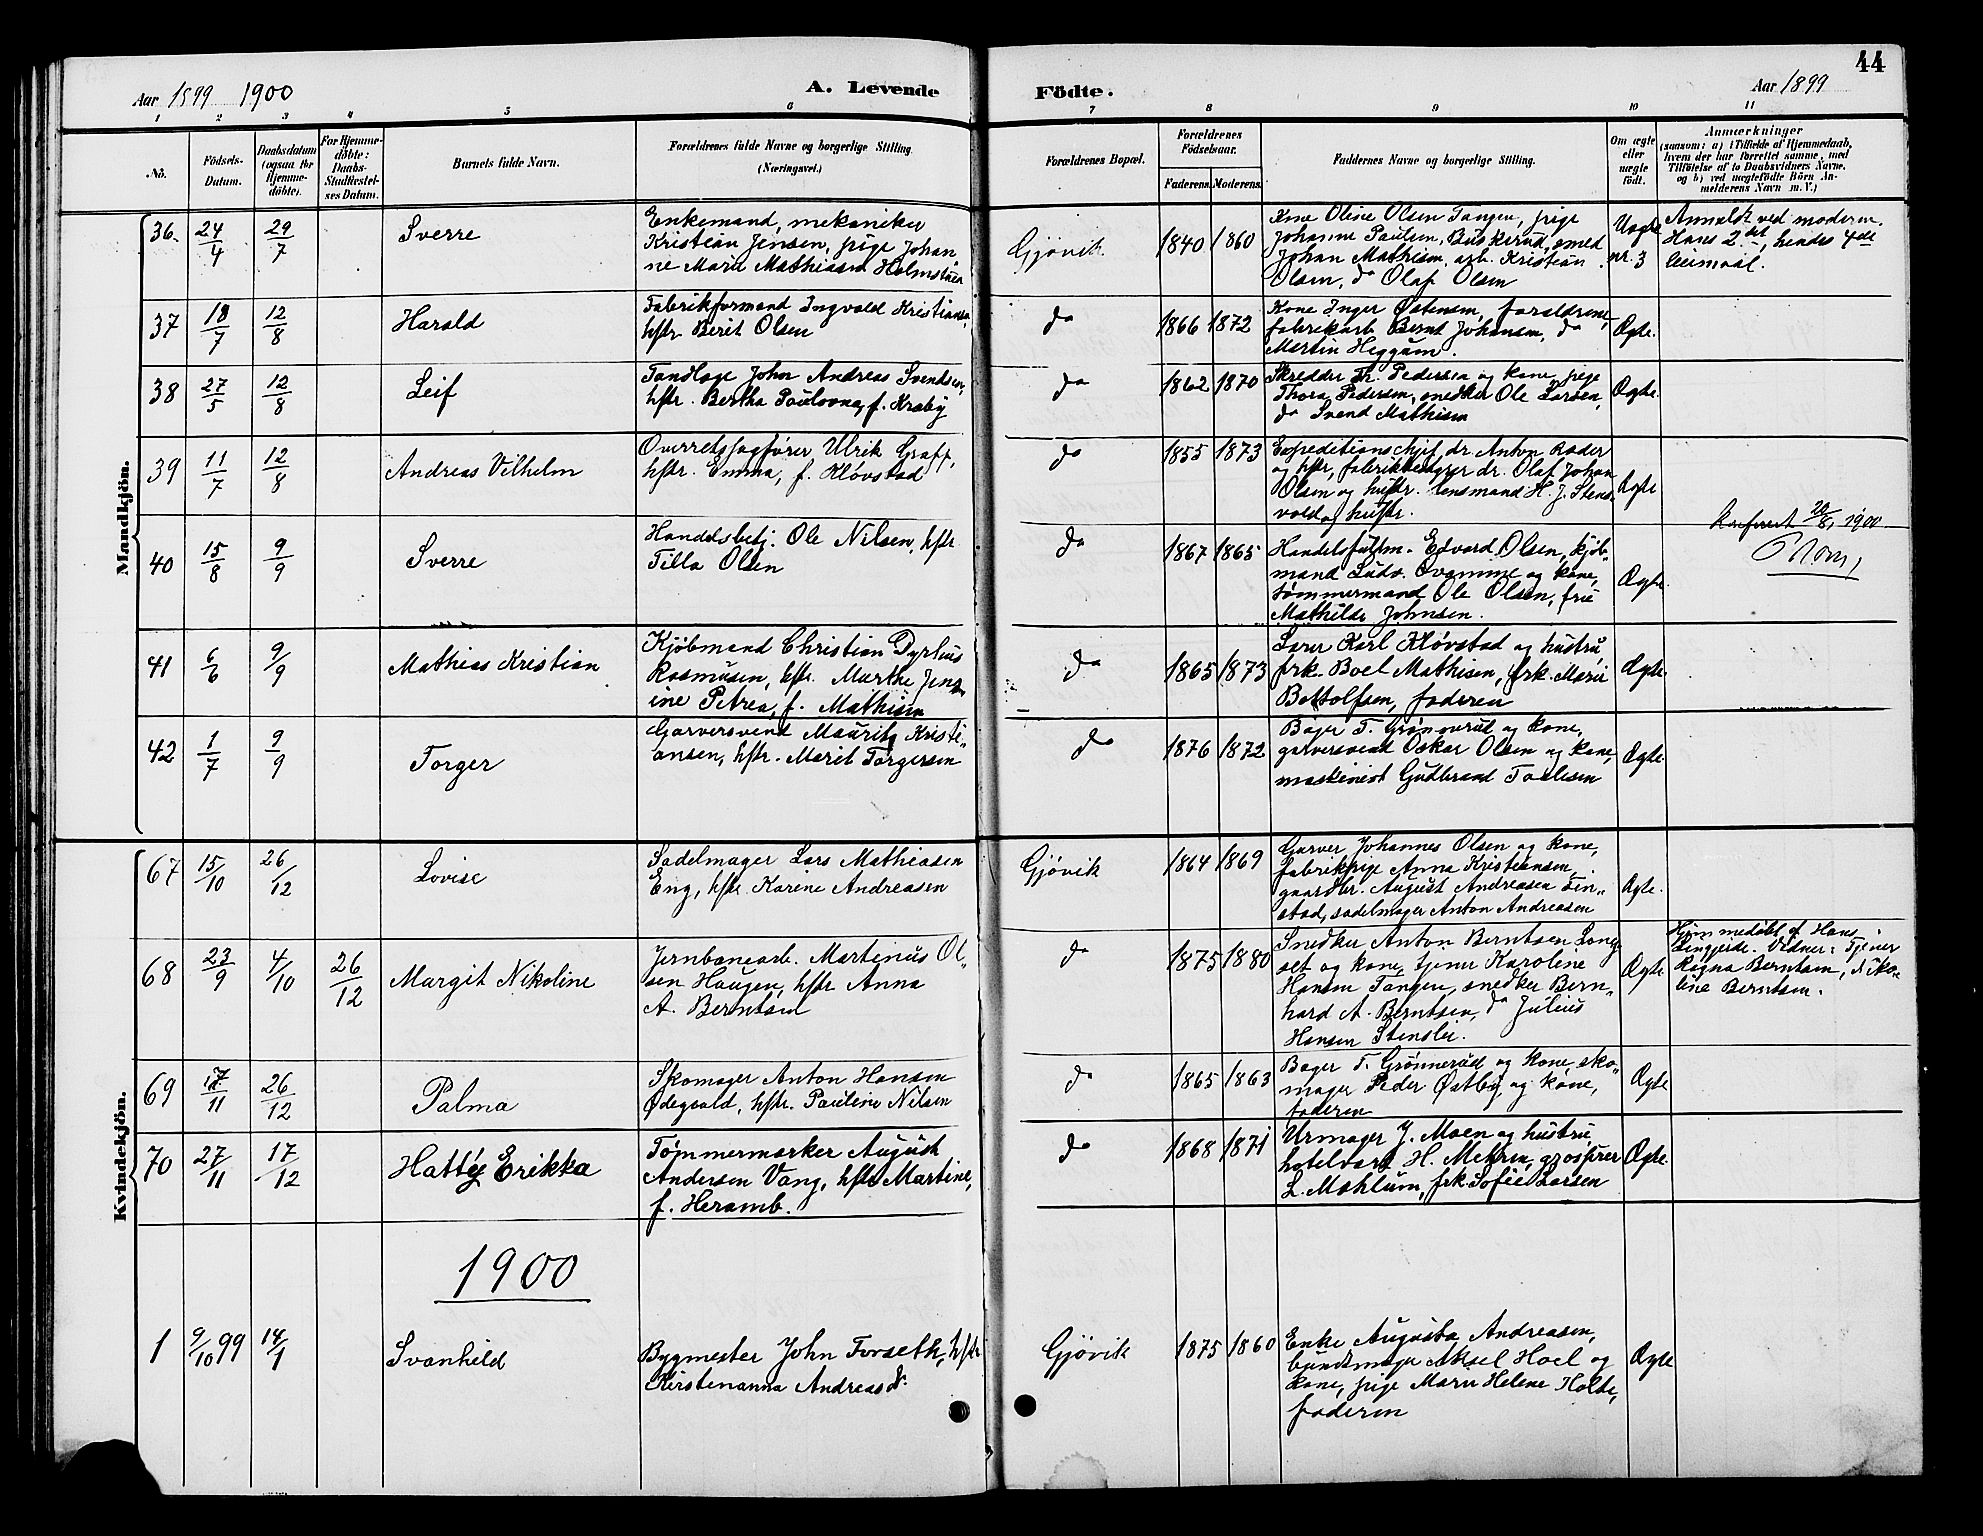 44
Aar 1899 1900
A. Levende
Födte.
Aar 1899
1 2 3 4 5 6 7 8 9 10 11
No.
Födsels-
Datum.
Daabsdatum
(ogsaa for
Hjemme-
döbte).
For Hjemme-
döbte:
Daabs-
Stadfæstel-
ses Datum.
Barnets fulde Navn.
Forældrenes fulde Navne og borgerlige Stilling
(Næringsvei.)
Forældrenes Bopæl.
Forældrenes
Födselsaar.
Faderens. Moderens.
Faddernes Navne og borgerlige Stilling.
Om ægte
eller
uægte
födt.
Anmærkninger
(saasom: a) i Tilfælde af Hjemmedaab,
hvem der har forrettet samme, med
Tilföielse af to Daabsvidners Navne,
og b) ved uægtefödte Börn An-
melderens Navn m. V.)
Mandkjön.
36. 24/4 29/7
Sverre
Enkemand, mekaniker
Kristian Jensen, pige Johan
ne Marie Mathiasen Holmstuen
Gjøvik
1840 1860
Kone Oline Olsen Tangen, pige
Johanne Paulsen, Buskerud, smed
Johan Mathisen, arb. Kristian
Olsen, do Olaf Olsen
Uægte
nr. 3
Anmeldt ved moderen.
Hans 2det, hendes 4de
leiermaal.
37 18/7 12/8
Harald
Fabrikformand Ingvald Kristiansen,
hstr. Berit Olsen
do
1866 1872
Kone Inger Østensen, forældrene,
fabrikarb. Bernt Johansen, do
Martin Heggum.
Ægte.
38 27/5 12/8
Leif
Tandlæge Johan Andreas Svendsen,
hstr. Bertha Paulovna, f. Kraby
do
1862 1870
Skrædder Fr. Pedersen og kone, pige
Thora Pedersen, snedker Ole Larsen,
do Svend Mathisen
Ægte.
39 11/7 12/8
Andreas Vilhelm
Overretssagfører Ulrik Graff,
hstr. Emma, f. Kløvstad
do
1855 1873
Expeditionschef dr. Anton Ræder
og hstr, fabrikbestyrer dr. Olaf Johan
Olsen og hustr. lensmand H. J. Stens-
vold og hustr.
Ægte
40 15/8 9/9
Sverre
Handelsbetj. Ole Nilsen, hstr
Tilla Olsen
do
1867 1865
Handelsfuldm. Edvard Olsen, kjøb-
mand Ludv. Ovamme og kone,
tømmermand Ole Olsen, frk
Mathilde Johnsen.
Ægte.
Konferert 20/8 1900
41 6/6 9/9
Mathias Kristian
Kjøbmand Christian Dyrhus
Rasmusen, hstr. Marthe Jens-
ine Petrea, f. Mathisen
do
1865 1873
Lærer Karl Kløvstad og hustru
frk. Boel Mathisen, frk. Marie
Bottolfsen, faderen
Ægte.
42 1/7 9/9
Torger
Garversvend Mauritz Kristi-
ansen, hstr. Marit Torgersen
do
1876 1872
Bager T. Grønnerud og kone,
garversvend Oskar Olsen og kone,
maskinist Gudbrand Paulsen
Ægte.
Kvindekjön.
67 15/10 26/12
Lovise
Sadelmager Lars Mathiasen
Eng, hstr. Karine Andreasen
Gjøvik
1864 1869
Garver Johannes Olsen og kone,
fabrikpige Anna Kristiansen,
gaardbr. August Andreasen Fin-
stad, sadelmager Anton Andreasen
Ægte.
68 23/9 4/10 26/12
Margit Nikoline
Jernbanearb. Martinus Ol-
sen Haugen, hstr Anna
A. Berntsen
do
1875 1880
Snedker Anton Berntsen Long-
set og kone, tjener Karoline
Hansen Tangen, snedker Bern-
hard A. Berntsen, do Julius
Hansen Stenslie.
Ægte
Hjemmedøbt af Hans
Lingjerde. Vidner: Tjener
Ragna Berntsen, Niko-
line Berntsen.
69 17/11 26/12
Palma
Skomager Anton Hansen
Ødegaard, hstr. Pauline Nilsen
do
1865 1863
Bager T. Grønnerud og kone, sko-
mager Peder Østby og kone,
faderen
Ægte
70 27/11 17/12
Hatty Erikka
Tømmermærker August
Andersen Vang, hstr Martine,
f. Heramb.
do
1868 1871
Urmager J. Moen og hustru
hotelvært H. Mehren, grosserer
L. Mæhlum, frk Sofie Larsen
Ægte.
1900
1 9/10 99 14/1
Svanhild
Bygmester John Forseth, hstr
Kirstenanna Andreasd.
Gjøvik
1875 1860
Enke Augusta Andreasen,
buntmager Aksel Hoel og
kone, pige Marie Helene Holte,
faderen
Ægte